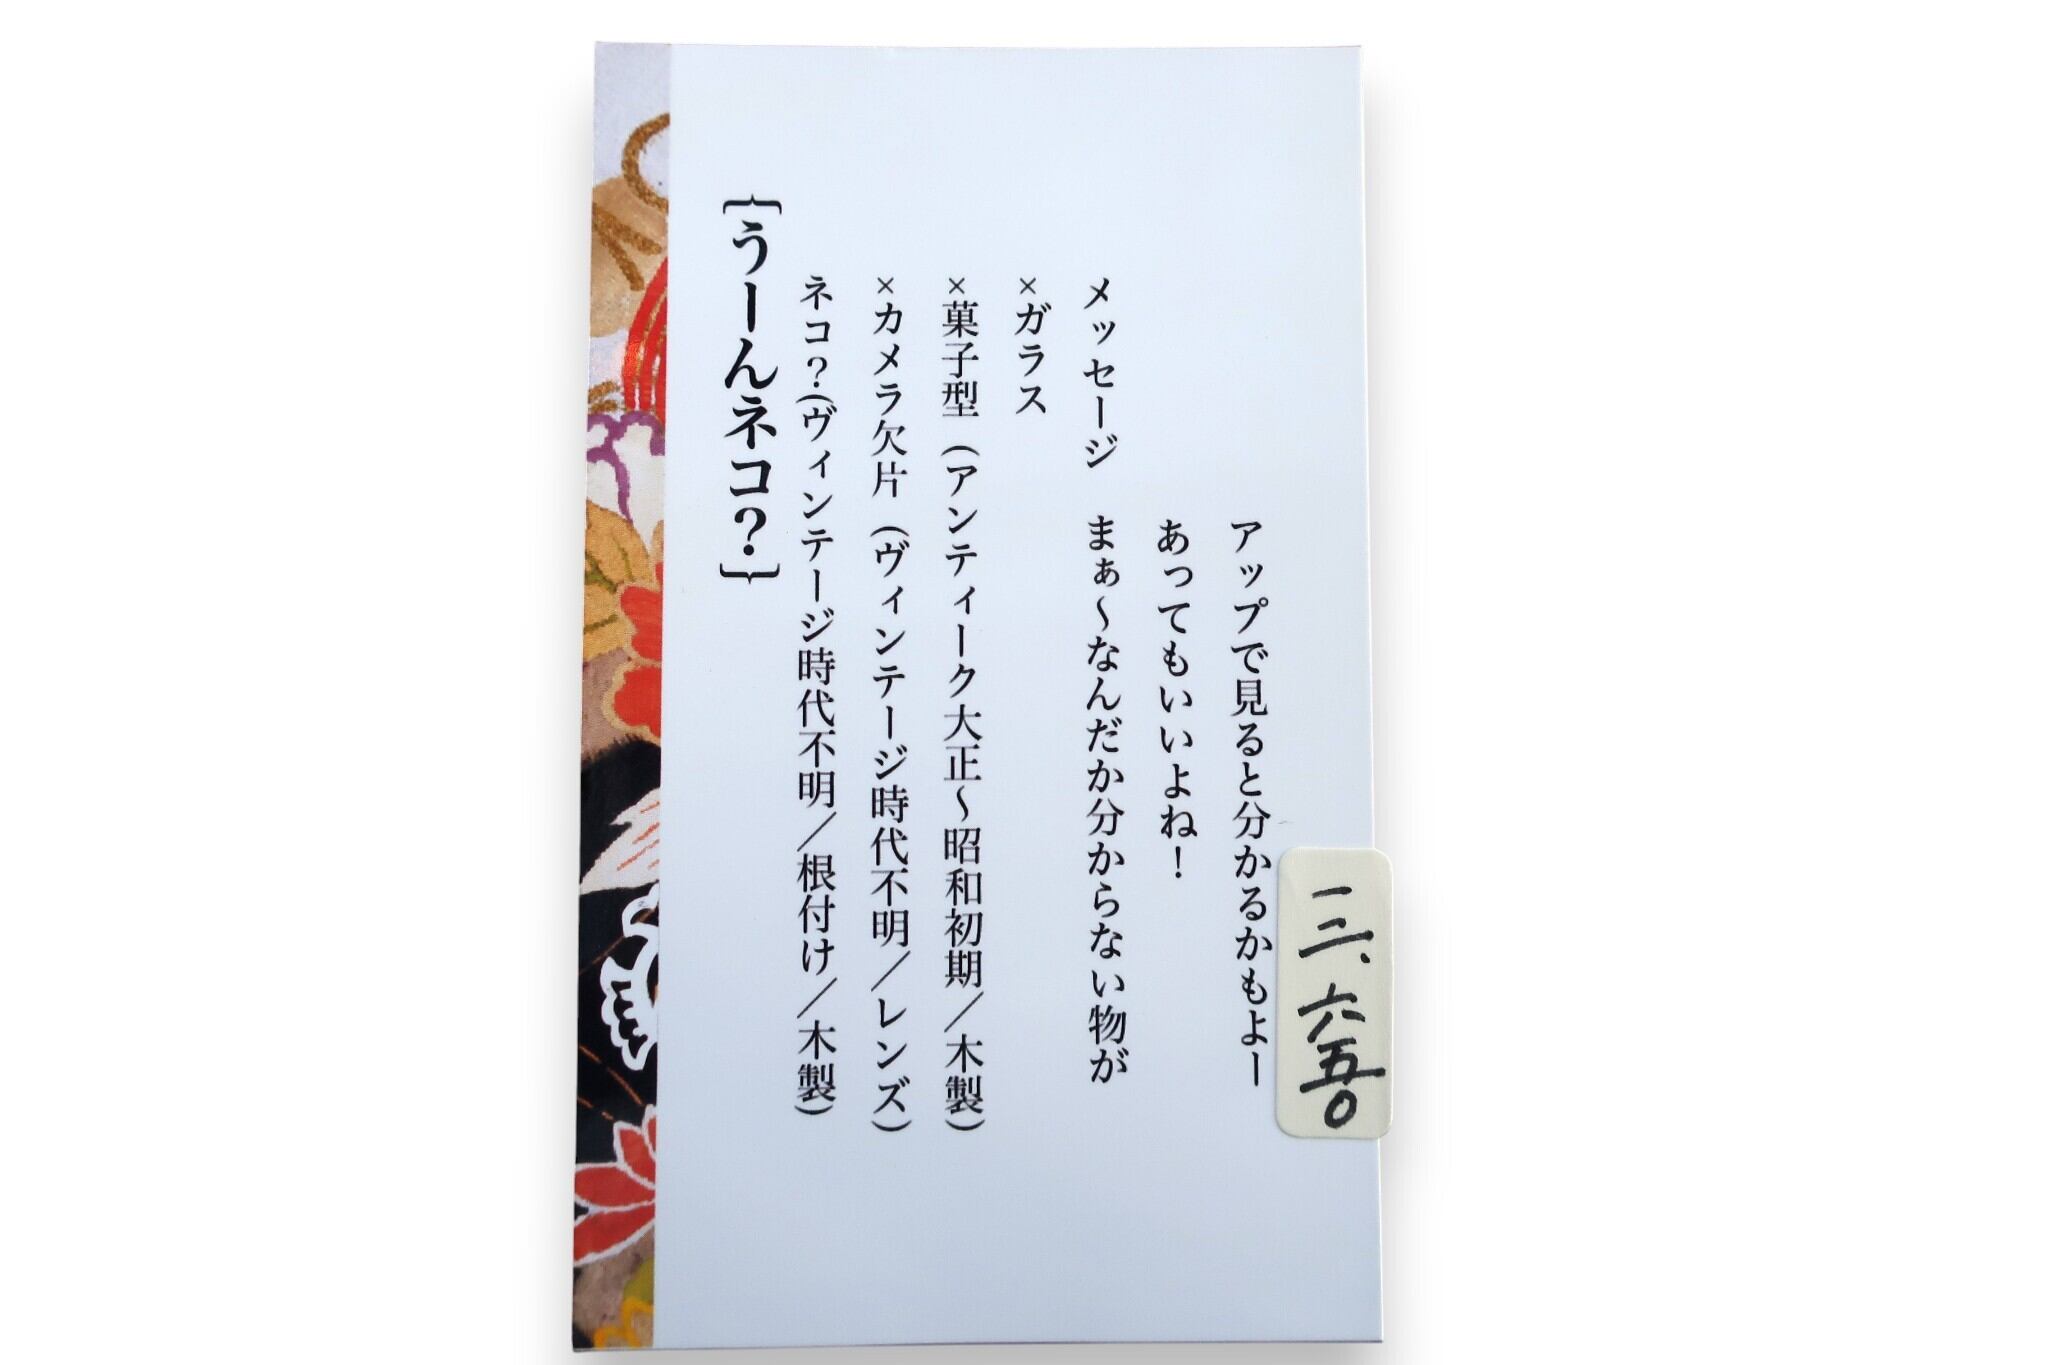 {うーんネコ?}
ネコ?(ヴィンテージ時代不明／根付け／木製)
×カメラ欠片（ヴィンテージ時代不明／レンズ）
×菓子型（アンティーク大正～昭和初期／木製）
×ガラス
メッセージ　まぁ～なんだか分からない物が
あってもいいよね！
アップで見ると分かるかもよー
三、六五〇